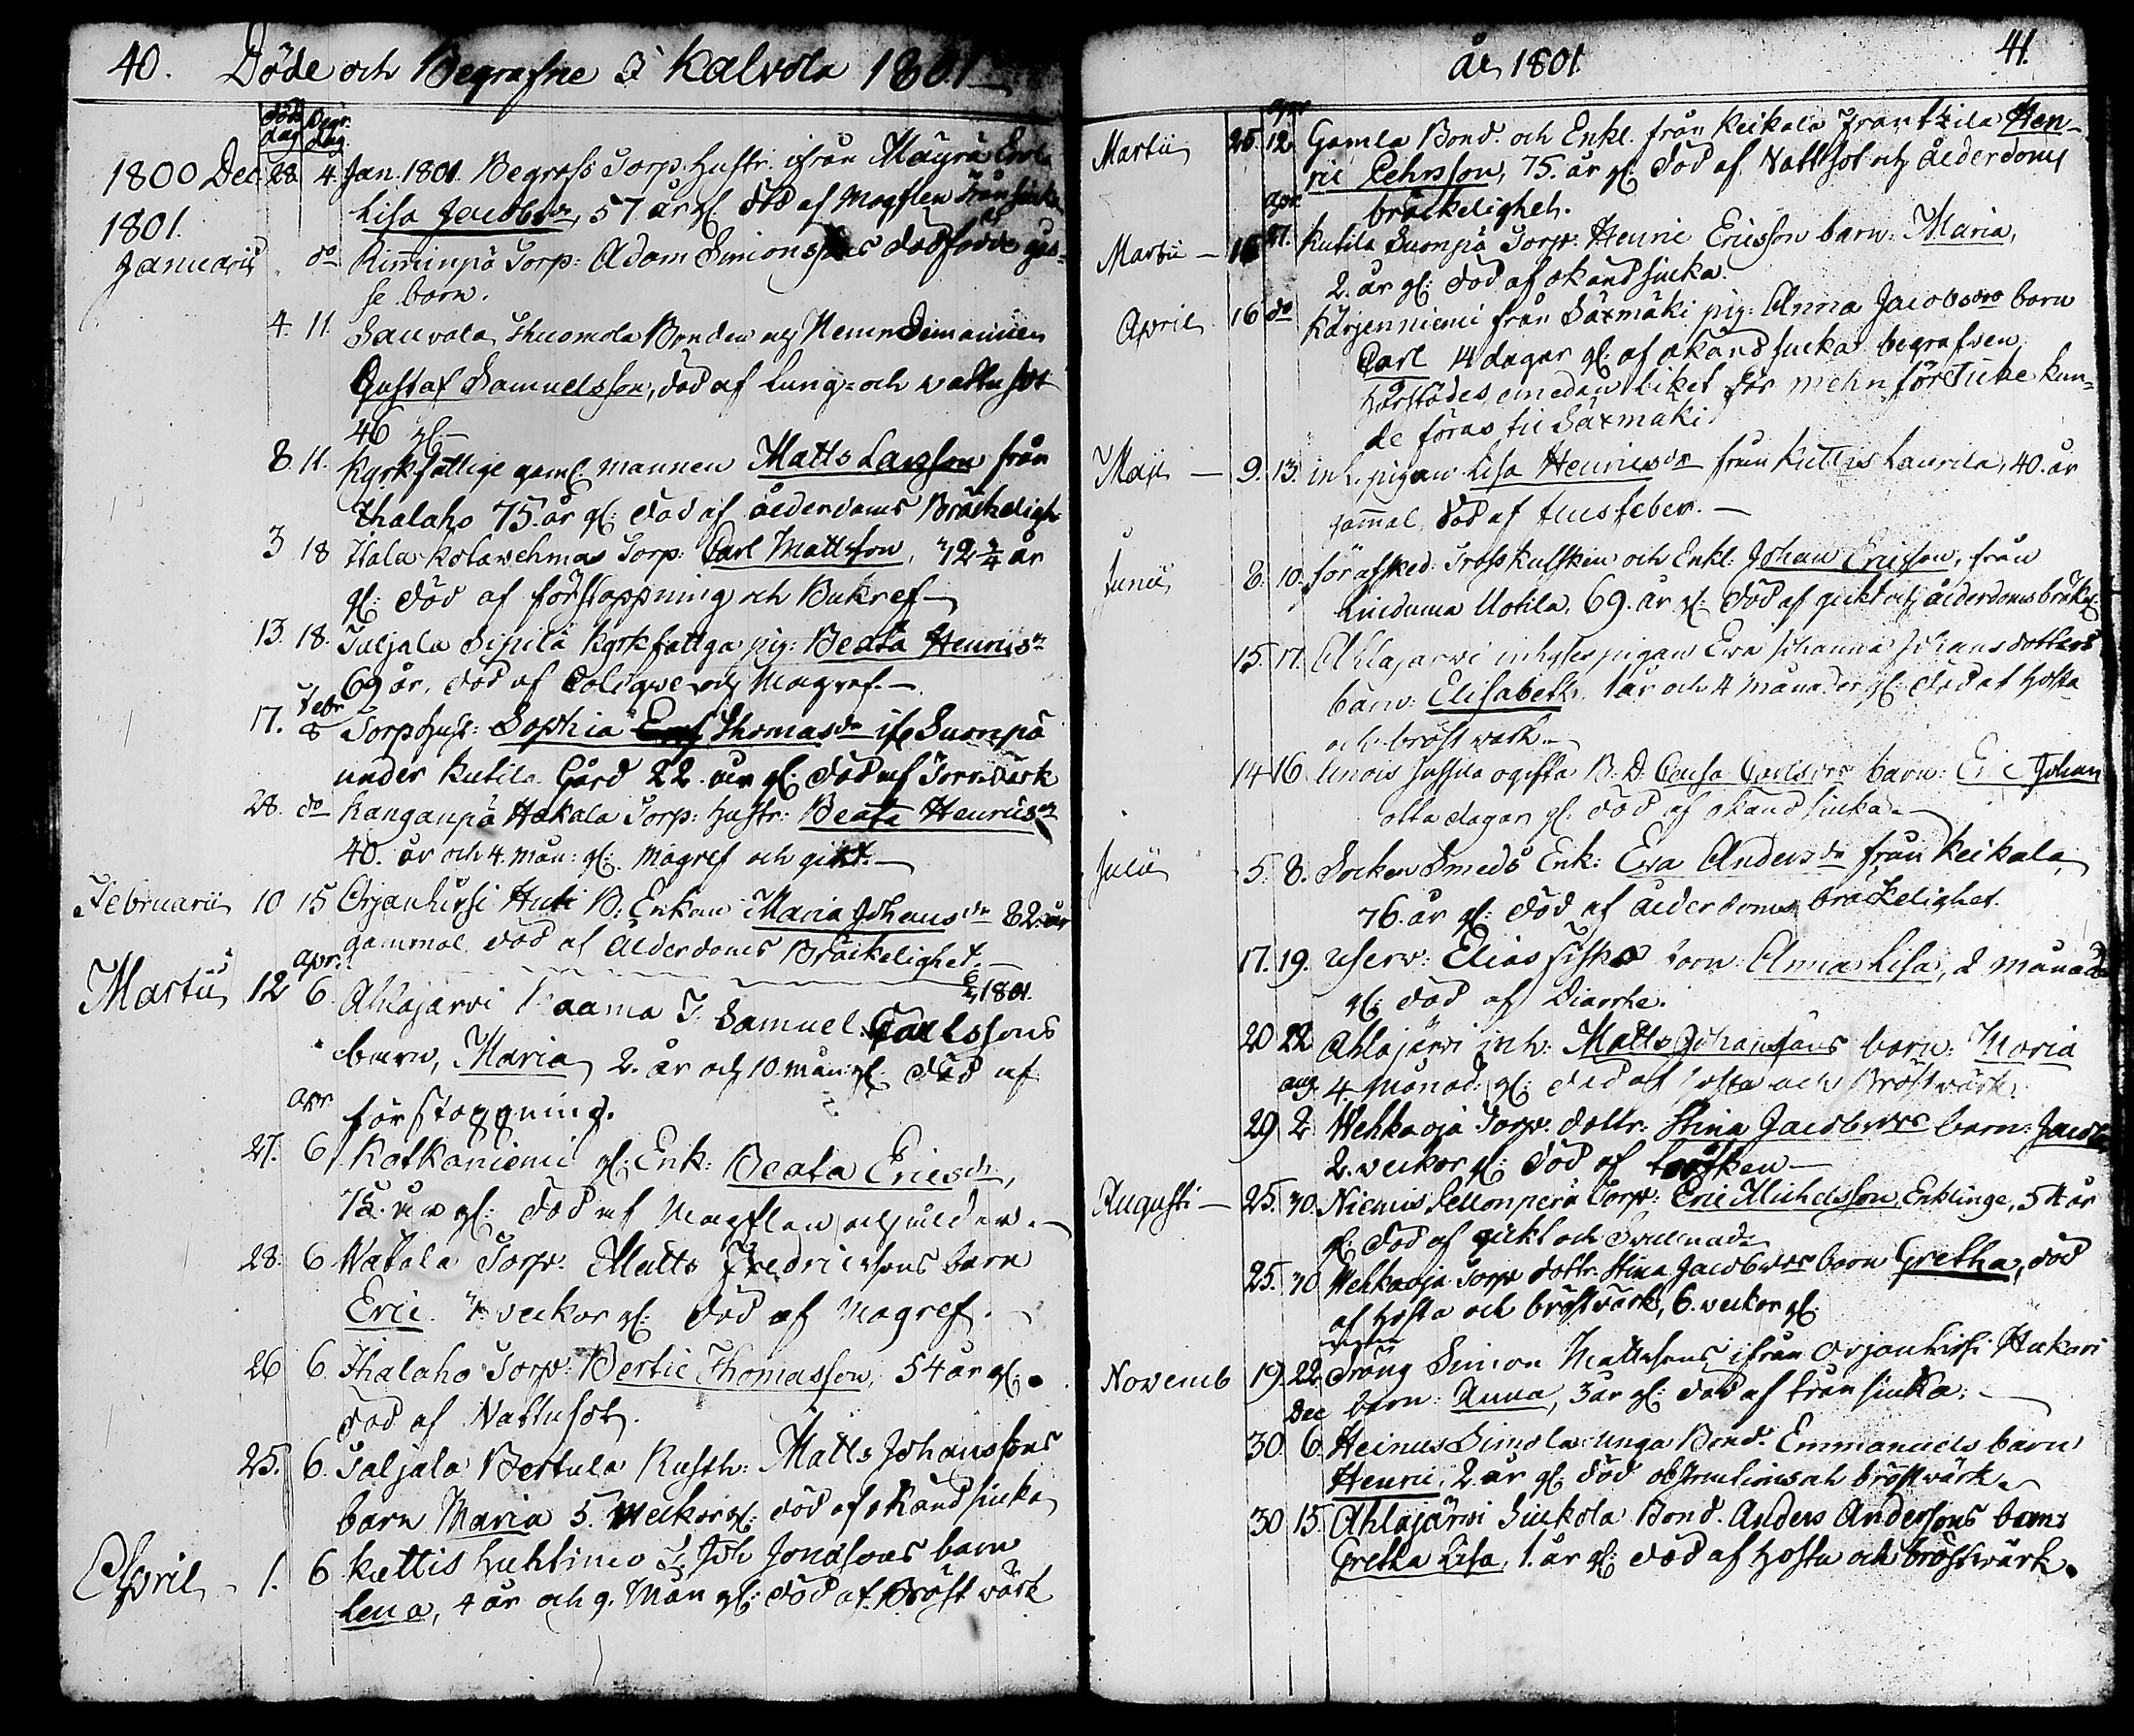 40. Döde och Begrafne I Kalvola 1801
död dag Begr. dag
1800 Dec. 28 4. Jan. 1801. Begrofs Torp: Hustr. ifrån Mäyrä
Lisa Jacobsdr, 57 år gl. död af Magflen
1801.
Januarii do Rimminpä Torp: Adam Simonssons dödfödde gos=
se barn.
4. 11. Sauvala, Bonden och
Gustaf Samuelsson, död af Lung= och wattusot
46 gl.
8. 11. Kyrkfattige gaml mannen Matts Larsson från
Ihalaho 75. år gl: död af ålderdoms Bräckeligh
3 18 Torp: Carl Mattsson, 72 3/4 år
gl: död af förstoppning och Bukref
13. 18. Taljala Sipilä kyrkfattga pig: Beata Henricsdr
69 år, död af Colique och Magref.
17. Febr 8 Torp: Hust: Sophia Thomasdr ifr Suonpä
under Kutila Gård 22. år gl: död af
28. do Kanganpä Hakala Torp: Hustr: Beata Henricsdr
40. år och 4. Mån: gl: Magref och gikt.
Februarii 10 15 Orjanhirsi Huti B: Enkan Maria Johansdr 82. år
gammal, död af ålderdoms Bräckelighet.
1801.
Martii 12 apr. 6. Ahlajärvi T: Samuel Carlssons
barn, Maria 2. år och 10. mån: gl: död af
förstoppning.
27. apr 6. Kotkaniemi gl: Enk: Beata Ericsdr,
75. år gl: död af Magflen och ålder.
28. 6 Watala Torp: Matts Fredricssons barn
Eric veckor gl: död af Magref.
26 6. Ihalaho Torp: Bertil Thomasson, 54 år gl:
död af Wattusot.
25. 6. Taljala Bertula Rusth: Matts Johanssons
barn Maria 5. Weckor gl: död af okänd siuka
April 1. 6 Kuttis Huhtimo T: Joh Jonassons barn
Lena, 4 år och 9. Mån gl: död af Bröst wärk
år 1801. 41.
Martii 25. apr 12 Gamla Bond. och Enkl. från Keikala Frantzila Hen-
ric Pehrsson, 75. år gl: död af Wattsot och ålderdoms
bräckelighet.
Martii 16 apr. Kutila Suonpä Torp: Henric Ericsson barn: Maria,
2. år gl: död af okänd siuka.
April 16 do Kärjenniemi från Säxmäki pig: Anna Jacobsdrs barn
Carl 14 dagar gl: af okänd siuka begrafven
härstädes, emedan liket för mehnföre icke kun=
de föras til Säxmäki.
Maji 9. 13. inh. pigan Lisa Henricsdr från Kuttis Laurila, 40. år
gammal, död af feber.
Junii 8. 10. förafsked: Trosskusken och Enkl: Johan Ericsson, från
Lindumä Uotila, 69. år gl: död af gikt och ålderdoms bräkl:
15. 17. Ahlajarvi inhyses pigan Eva Johanna Johansdotters
barn: Elisabeth, 1 år och 4 månader gl: död af hosta
och bröst wärk.
14 16. Unois Jussila ogifta B. D. Caisa Carlsdrs barn: Eric Johan
otta dagar gl: död af okänd siuka.
Julii 5. 8. Socken Smeds Enk: Eva Andersdr från Keikala,
76. år gl: död af ålderdoms bräckelighet.
17. 19. Elias barn: Anna Lisa, 2 månader
gl: död af Diarrhe.
20 22 Ahlajärvi inh: Matts Johanssons barn: Maria
4. månad: gl: död af hosta och Bröstwärk
29 aug. 2 Wehkaoja Torp. dottr: Stina Jacobsdrs barn: Jacob
2. veckor gl: död af
Augusti 25. 30. Niemis Pellonperä Torp: Eric Michelsson, Enklinge, 54 år
gl: död af gikt och Swullnad.
25. 30 Wehkaoja Torp dottr: Stina Jacobsdrs barn Gretha, död
af hosta och bröstvärk, 6. veckor gl:
Novemb 19. 22 Dräng Simon Mattssons ifrån Orjanhirsi Hukari
barn: Anna, 3 år gl: död af siuka.
30. Dec 6. Heinus Simola unga Bond. Emmanuels barn
Henric, 2. år gl: död obstructions och bröstwärk.
30 15. Ahlajärvi Siukola Bond. Anders Anderssons barn:
Gretha Lisa, 1. år gl: död af hosta och bröstwärk.